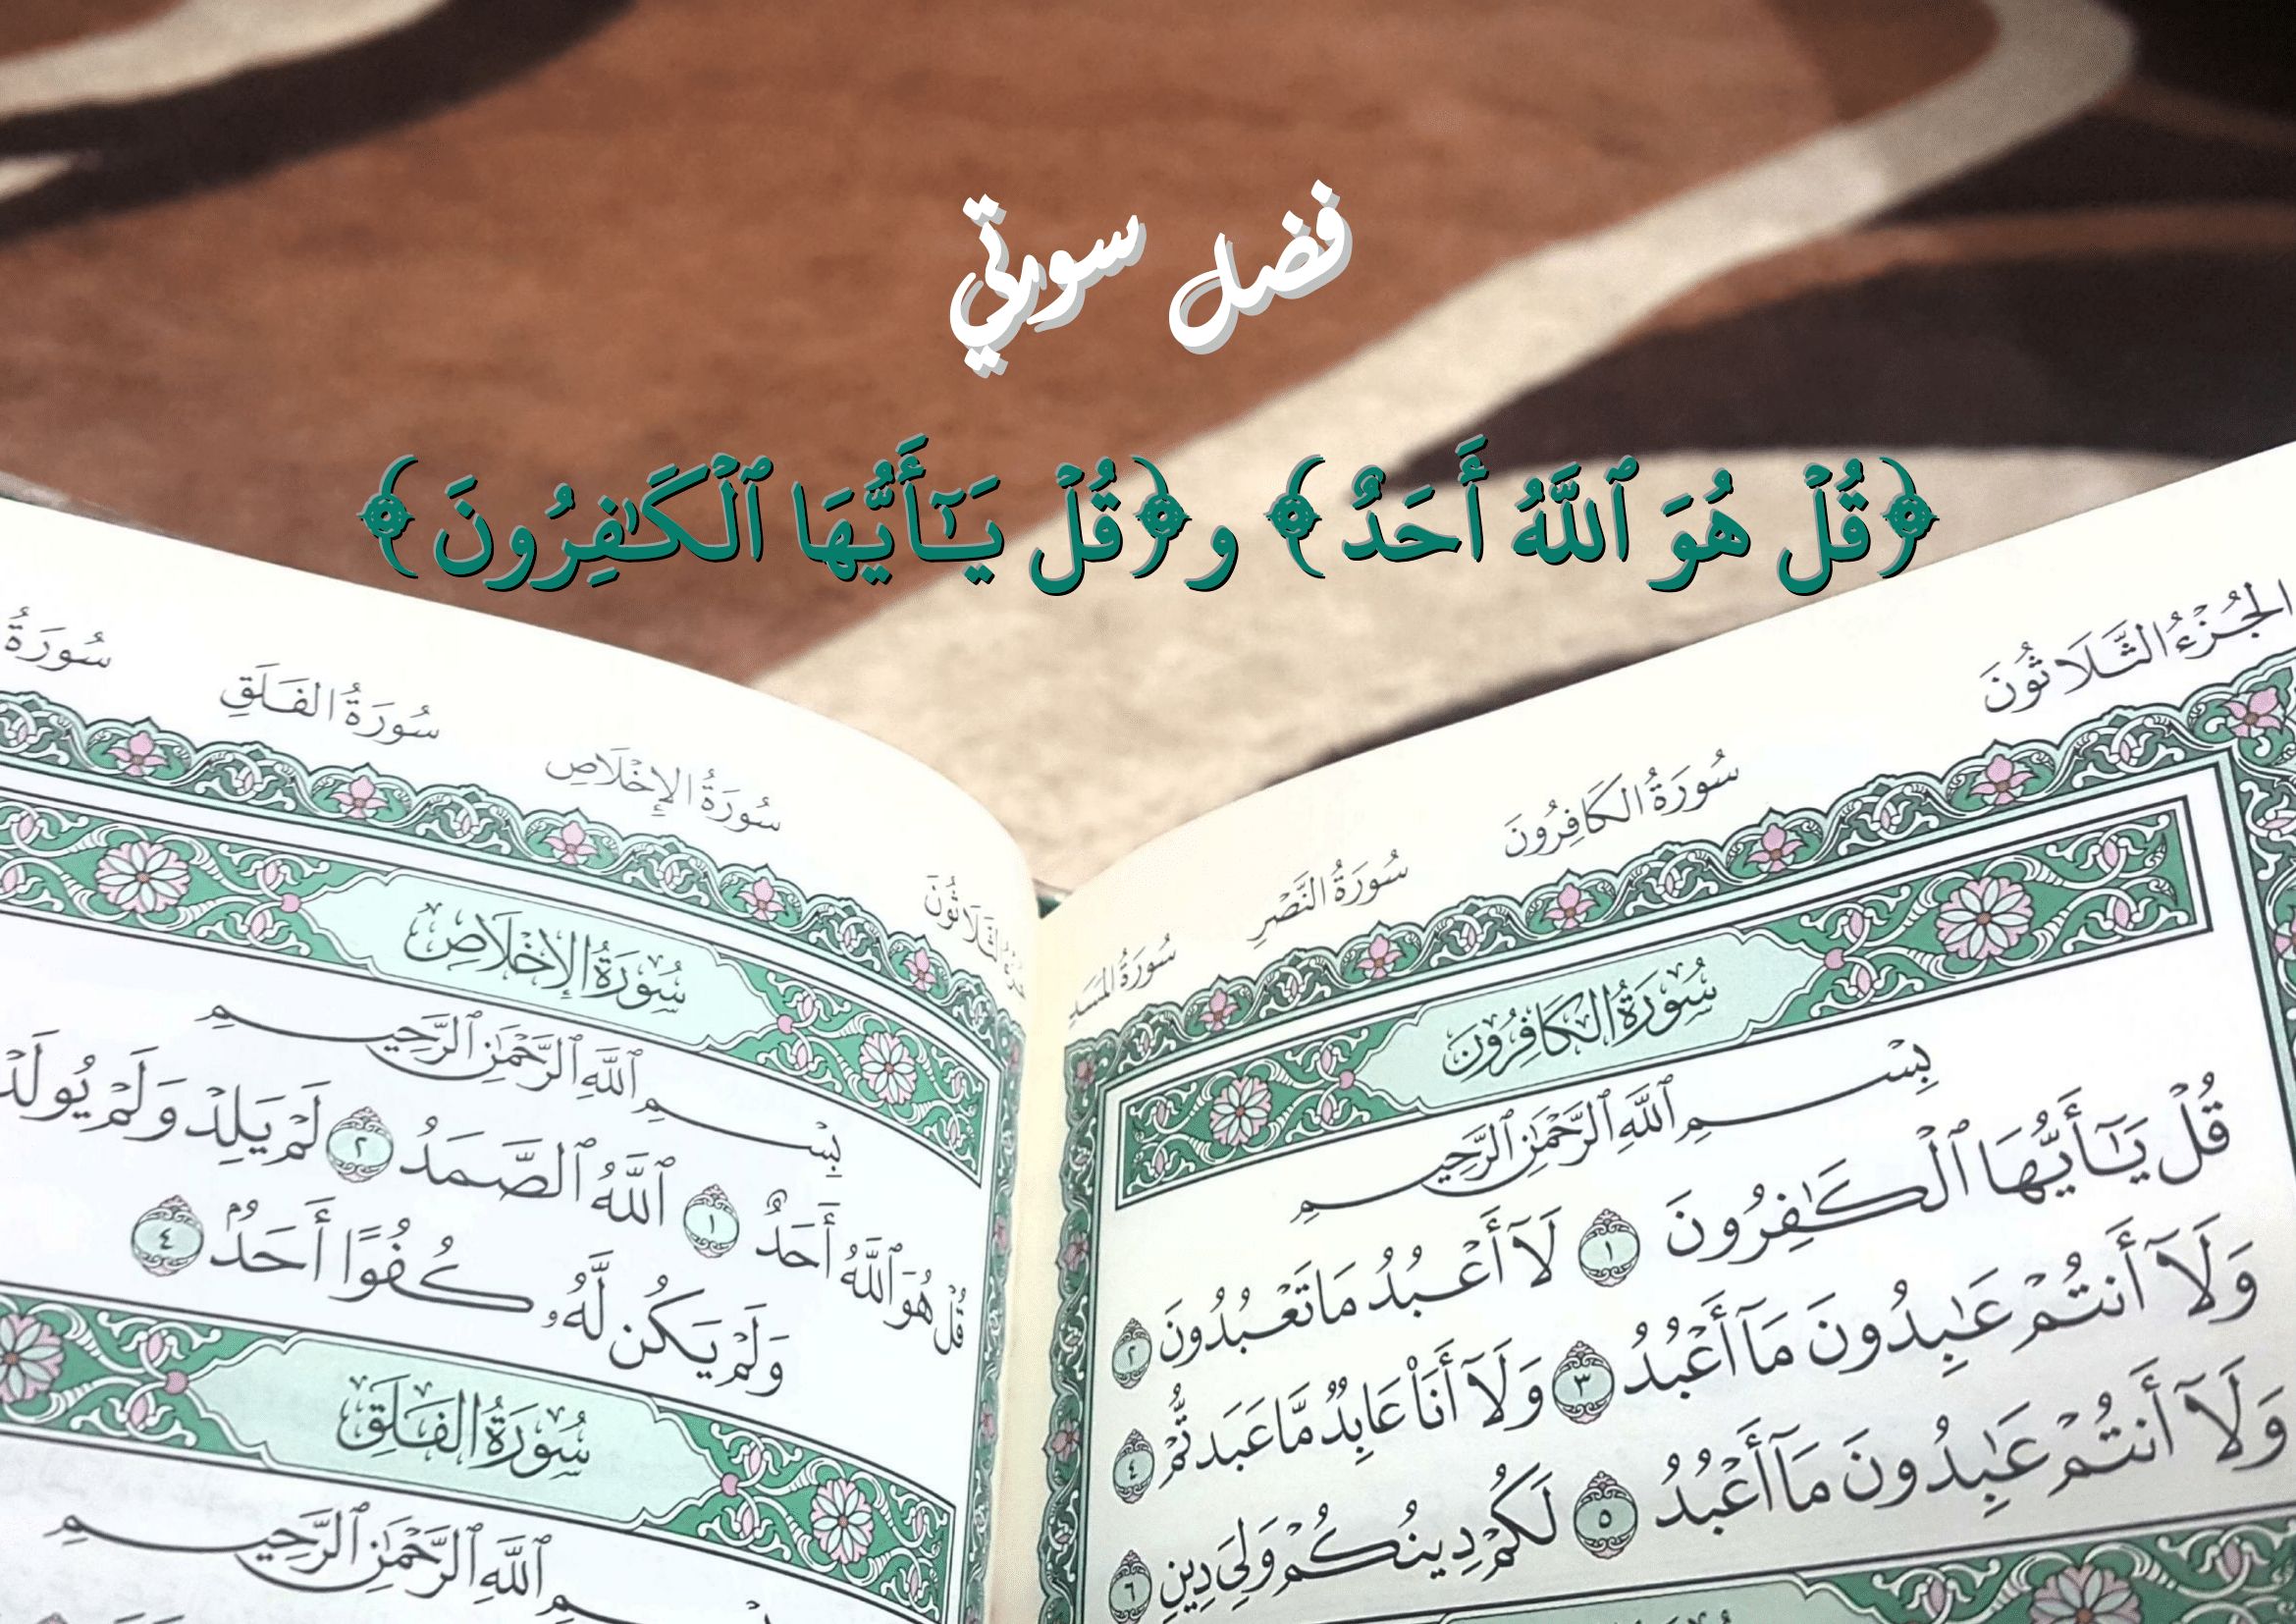 فضل سورتي
﴿قُلْ هُوَ ٱللَّهُ أَحَدٌ﴾ و﴿قُلْ يَـٰٓأَيُّهَا ٱلْكَـٰفِرُونَ﴾
الجُزْءُ الثَّلَاثُونَ
سُورَةُ الكَافِرُونَ
سُورَةُ النَّصْرِ
سُورَةُ الكَافِرُونَ
بِسْمِ ٱللَّهِ ٱلرَّحْمَٰنِ ٱلرَّحِيمِ
قُلْ يَـٰٓأَيُّهَا ٱلْكَـٰفِرُونَ ١ لَآ أَعْبُدُ مَا تَعْبُدُونَ ٢
وَلَآ أَنتُمْ عَـٰبِدُونَ مَآ أَعْبُدُ ٣ وَلَآ أَنَا۠ عَابِدٌ مَّا عَبَدتُّمْ ٤
وَلَآ أَنتُمْ عَـٰبِدُونَ مَآ أَعْبُدُ ٥ لَكُمْ دِينُكُمْ وَلِيَ دِينِ ٦
الثَّلَاثُونَ
سُورَةُ الإِخْلَاصِ
سُورَةُ الفَلَقِ
سُورَةُ
سُورَةُ الإِخْلَاصِ
بِسْمِ ٱللَّهِ ٱلرَّحْمَٰنِ ٱلرَّحِيمِ
قُلْ هُوَ ٱللَّهُ أَحَدٌ ١ ٱللَّهُ ٱلصَّمَدُ ٢ لَمْ يَلِدْ وَلَمْ يُولَدْ
وَلَمْ يَكُن لَّهُۥ كُفُوًا أَحَدٌۢ ٤
سُورَةُ الفَلَقِ
بِسْمِ ٱللَّهِ ٱلرَّحْمَٰنِ ٱلرَّحِيمِ